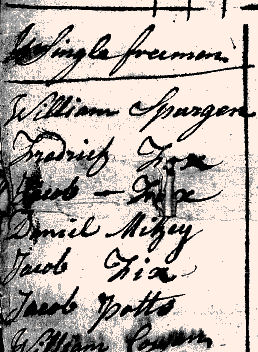 Single freemen
William Spurgen
Fredrick Fox
Jacob - Fox
Daniel Mitzey
Jacob Fix
Jacob Potts
William Cowen